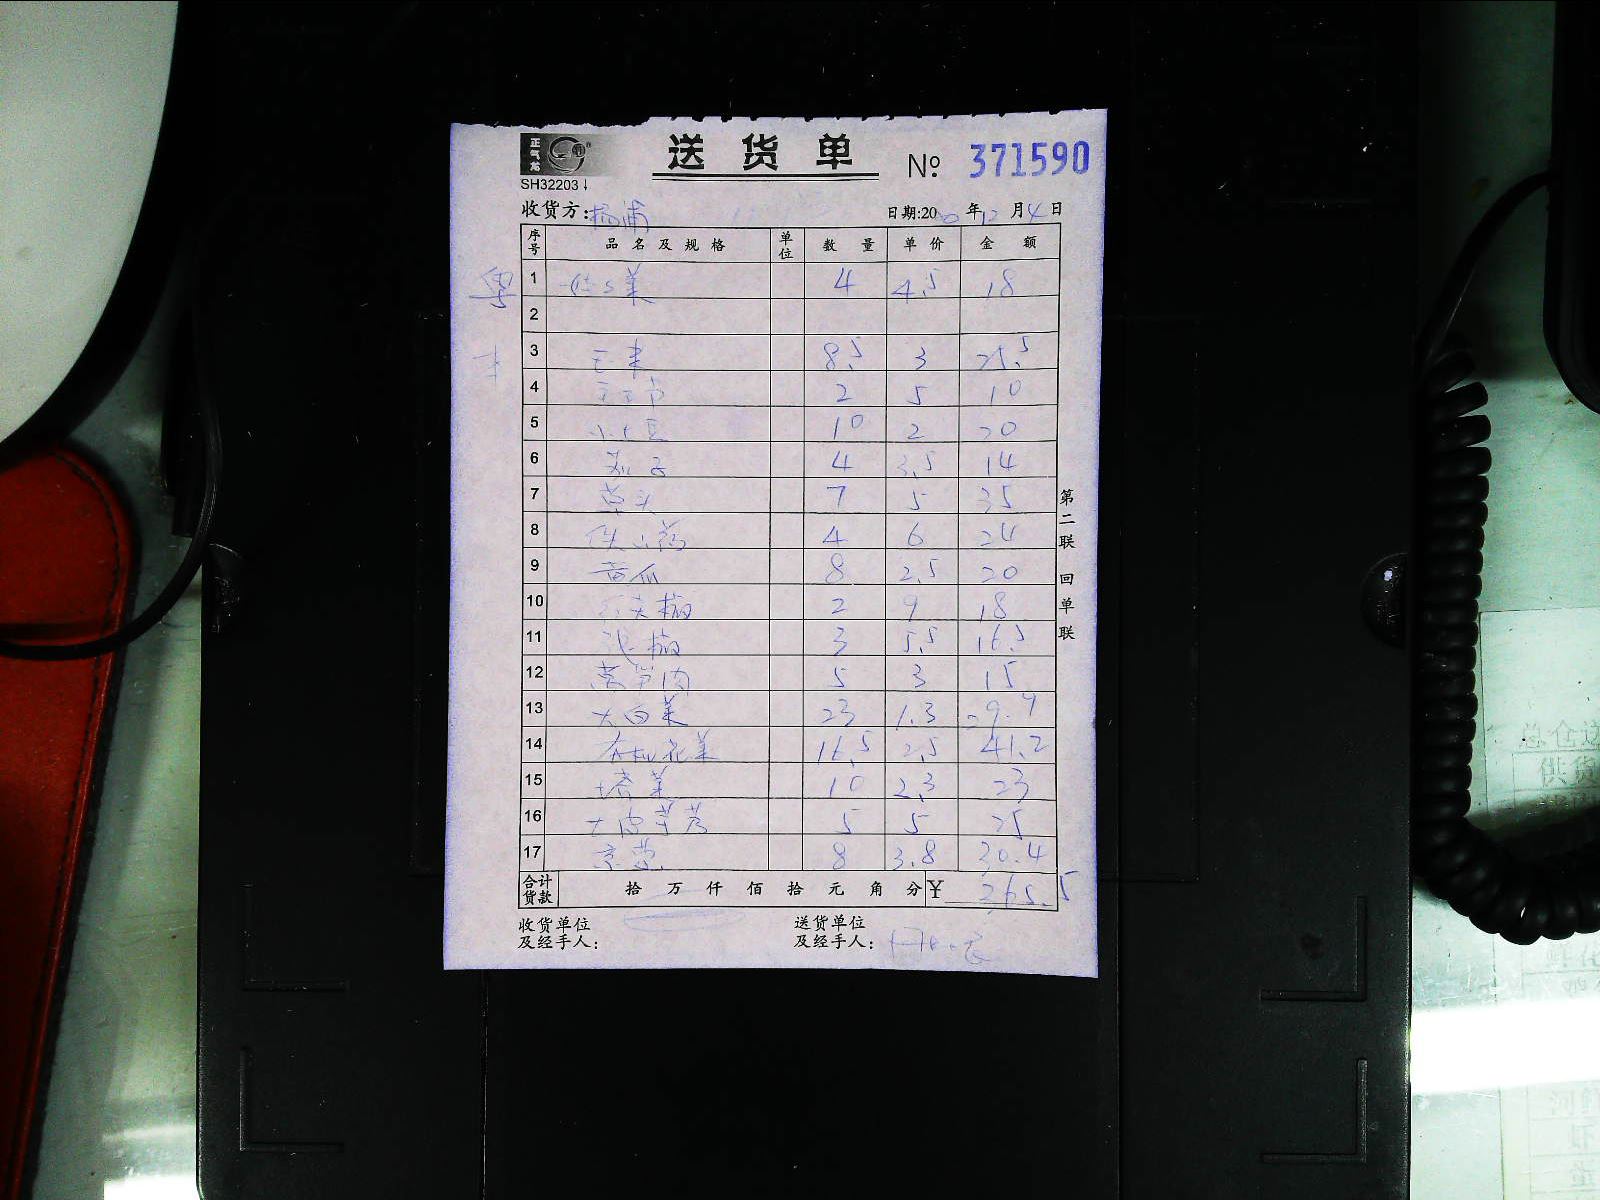 正气龙
送货单 № 371590
SH32203
收货方: 杨浦 日期:20 年12月4日
序号 品名及规格 单位 数量 单价 金额
1 4 4.5 18
2
3 玉米 8.5 3 25.5
4 2 5 10
5 小土豆 10 2 20
6 茄子 4 3.5 14
7 草头 7 5 35
8 铁山药 4 6 24
9 黄瓜 8 2.5 20
10 2 9 18
11 3 5.5 16.5
12 莴笋肉 5 3 15
13 大白菜 23 1.3 29.9
14 有机花菜 16.5 2.5 41.2
15 塔菜 10 2.3 23
16 5 5 25
17 京葱 8 3.8 30.4
合计货款 拾 万 仟 佰 拾 元 角 分 ¥ 365.5
收货单位及经手人:
送货单位及经手人:
第二联 回单联
供货